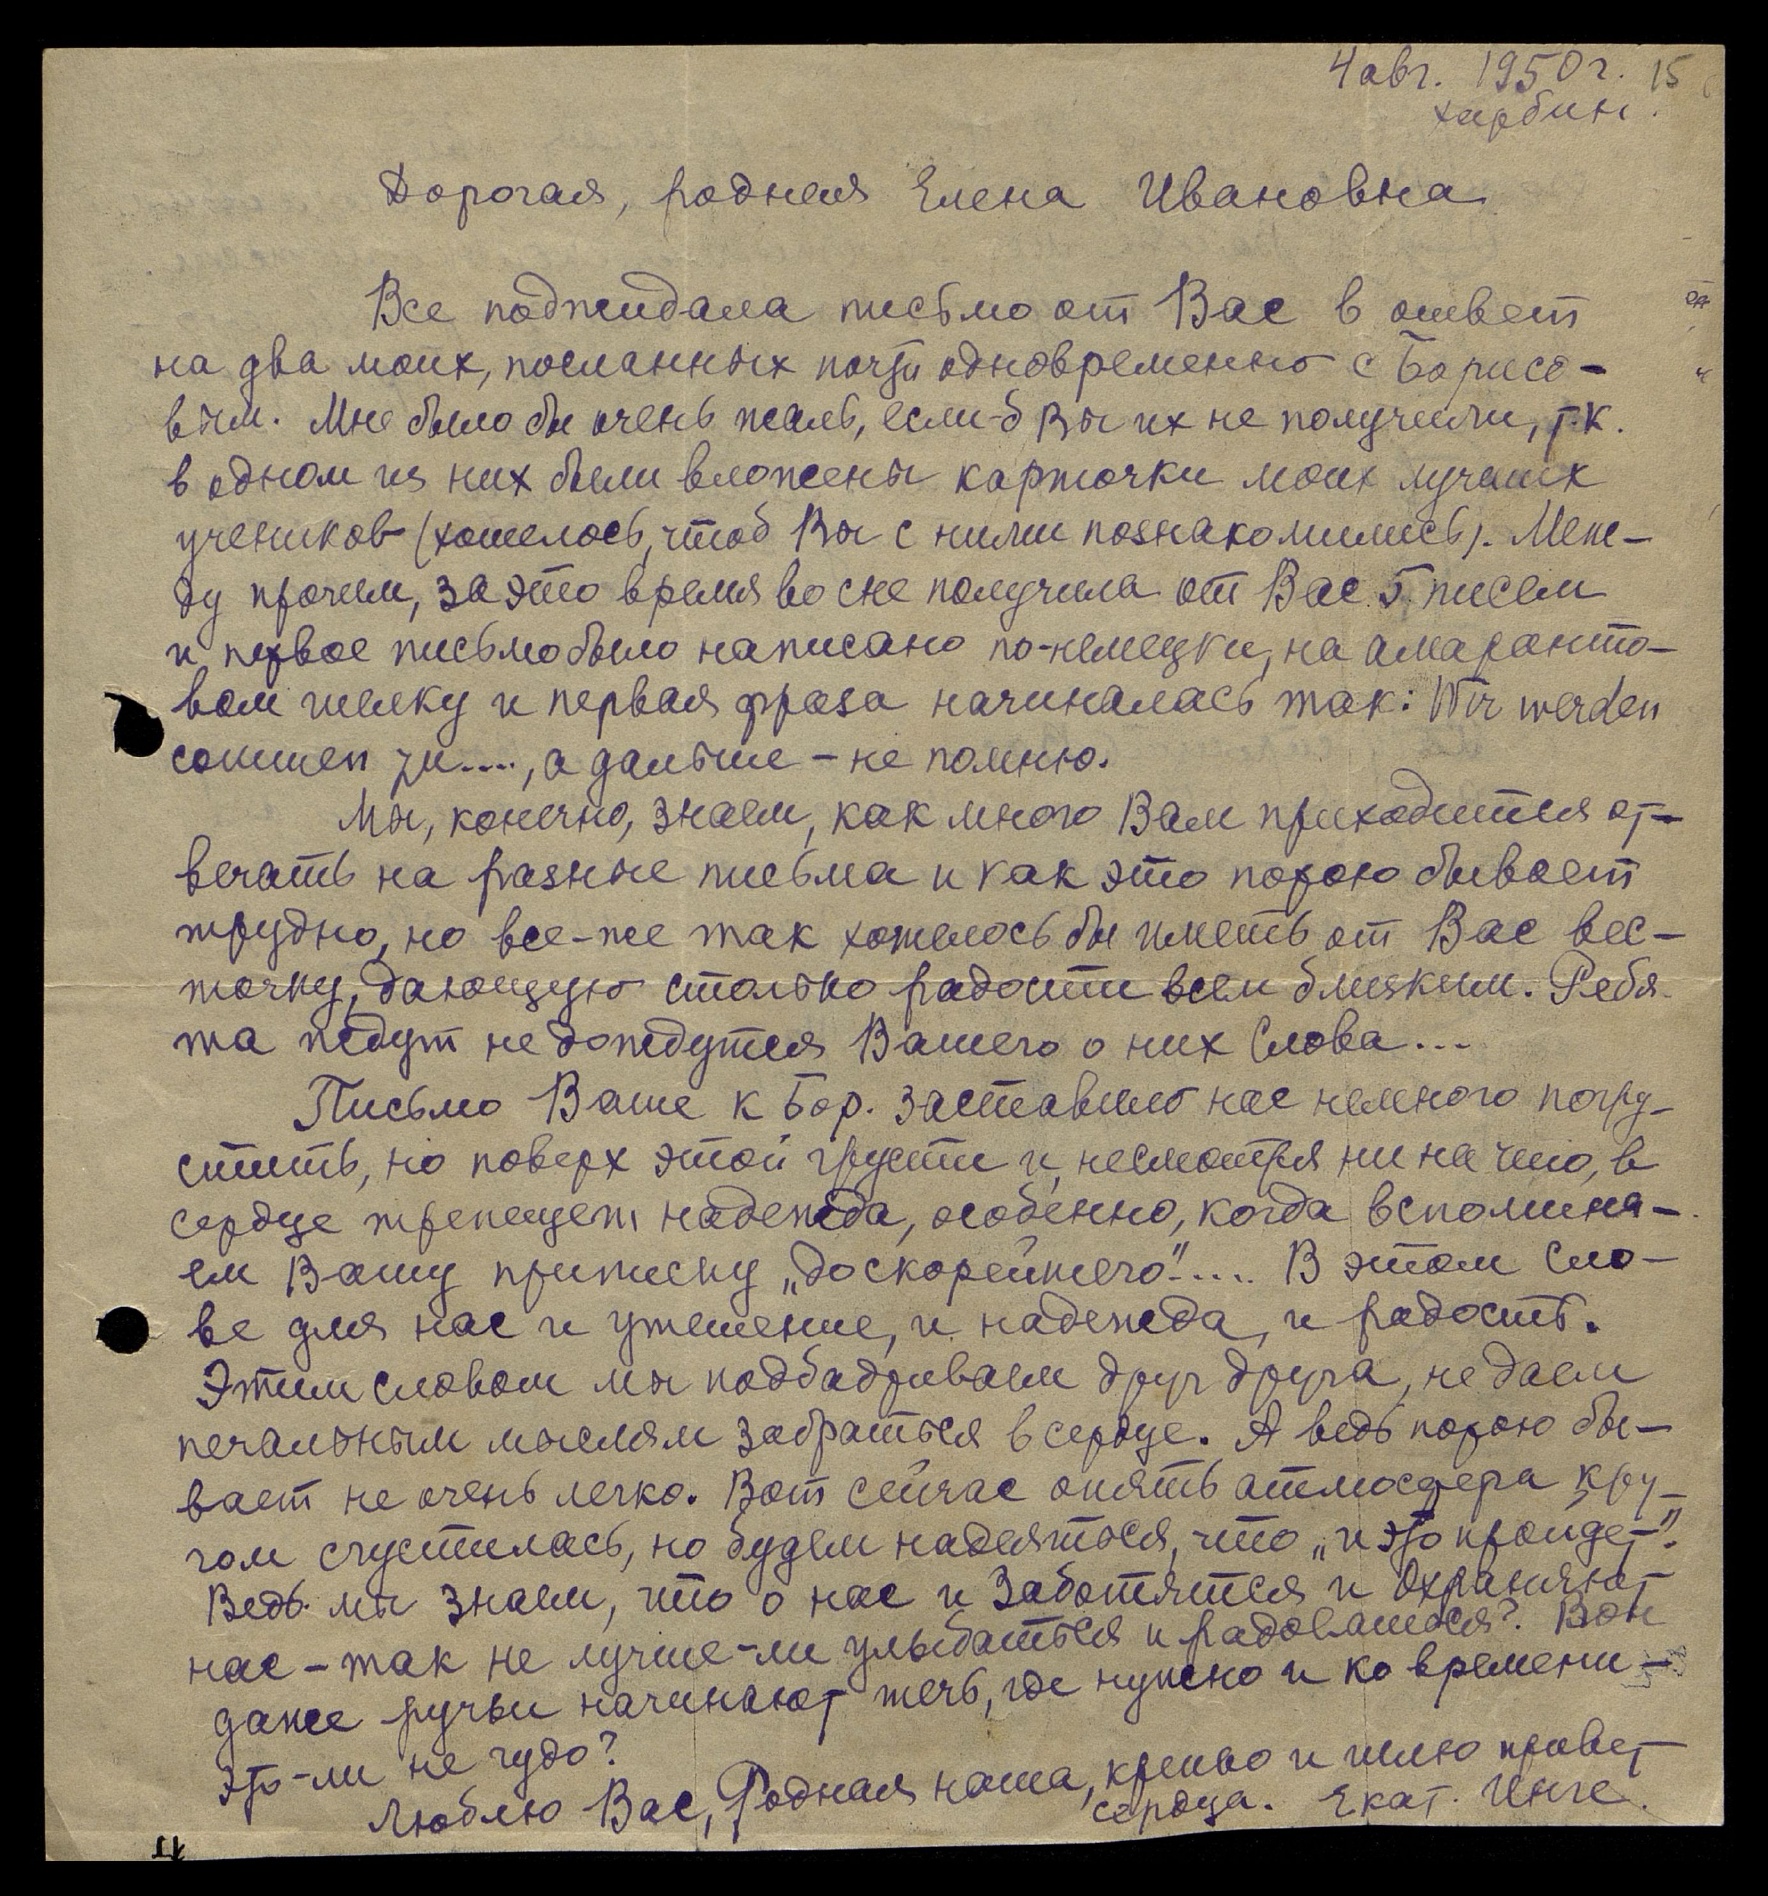 4 авг. 1950 г. 15
Харбин.
Дорогая, родная Елена Ивановна
Все поджидала письмо от Вас в ответ
на два моих, посланных почти одновременно с Борисо-
вым. Мне было бы очень жаль, если-б Вы их не получили, т.к.
в одном из них были вложены карточки моих лучших
учеников (хотелось, чтоб Вы с ними познакомились). Меж-
ду прочем, за это время во сне получила от Вас 5 писем
и первое письмо было написано по-немецки, на амаранто-
вом шелку и первая фраза начиналась так: Wir werden
commen zu...., а дальше – не помню.
Мы, конечно, знаем, как много Вам приходится от-
вечать на разные письма и как это порою бывает
трудно, но все-же так хотелось бы иметь от Вас вес-
точку, дающую столько радости всем близким. Ребя-
та ждут не дождутся Вашего о них Слова...
Письмо Ваше к Бор. заставило нас немного погру-
стить, но поверх этой грусти и, несмотря ни на что, в
сердце трепещет надежда, особенно, когда вспомина-
ем Вашу приписку „до скорейшего".... В этом сло-
ве для нас и утешение, и надежда, и радость.
Этим словом мы подбадриваем друг друга, не даем
печальным мыслям забраться в сердце. А ведь порою бы-
вает не очень легко. Вот сейчас опять атмосфера кру-
гом сгустилась, но будем надеяться, что „и это пройдет".
Ведь мы знаем, что о нас и Заботятся и Охраняют
нас – так не лучше-ли улыбаться и радоваться? Вон
даже ручьи начинают течь, где нужно и ко времени –
это-ли не чудо?
Люблю Вас, Родная наша, крепко и шлю привет
сердца. Екат. Инге.